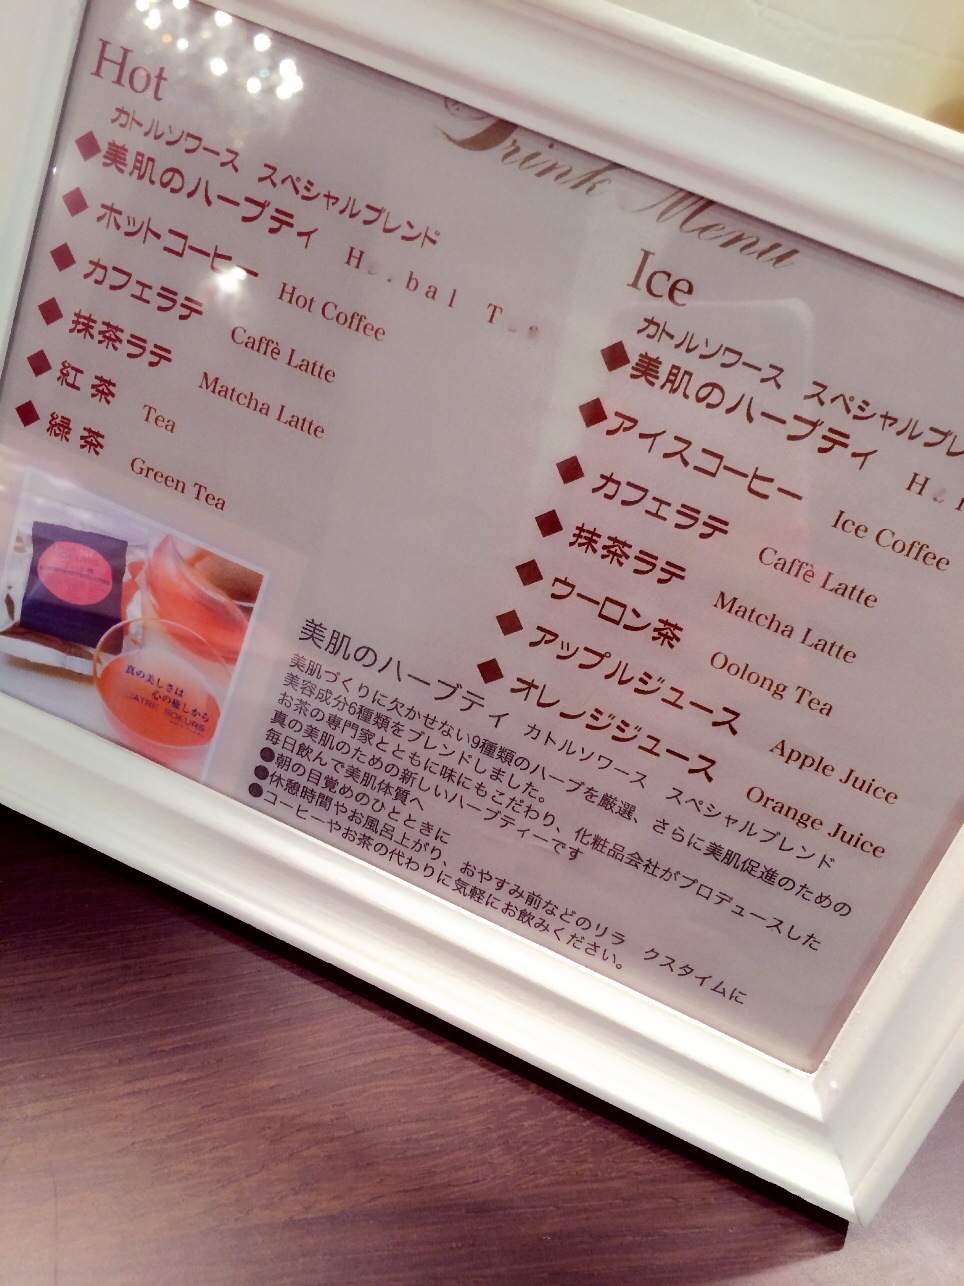 Drink Menu
Hot
カトルソワース スペシャルブレンド
◆美肌のハーブティ Herbal Tea
◆ホットコーヒー Hot Coffee
◆カフェラテ Caffè Latte
◆抹茶ラテ Matcha Latte
◆紅茶 Tea
◆緑茶 Green Tea
Ice
カトルソワース スペシャルブレ
◆美肌のハーブティ H
◆アイスコーヒー Ice Coffee
◆カフェラテ Caffè Latte
◆抹茶ラテ Matcha Latte
◆ウーロン茶 Oolong Tea
◆アップルジュース Apple Juice
◆オレンジジュース Orange Juice
真の美しさは
心の癒しから
QUATRE SOEURS
美肌のハーブティ カトルソワース スペシャルブレンド
美肌づくりに欠かせない9種類のハーブを厳選、さらに美肌促進のための
美容成分6種類をブレンドしました。
お茶の専門家とともに味にもこだわり、化粧品会社がプロデュースした
真の美肌のための新しいハーブティーです
毎日飲んで美肌体質へ
●朝の目覚めのひとときに
●休憩時間やお風呂上がり、おやすみ前などのリラ クスタイムに
●コーヒーやお茶の代わりに気軽にお飲みください。